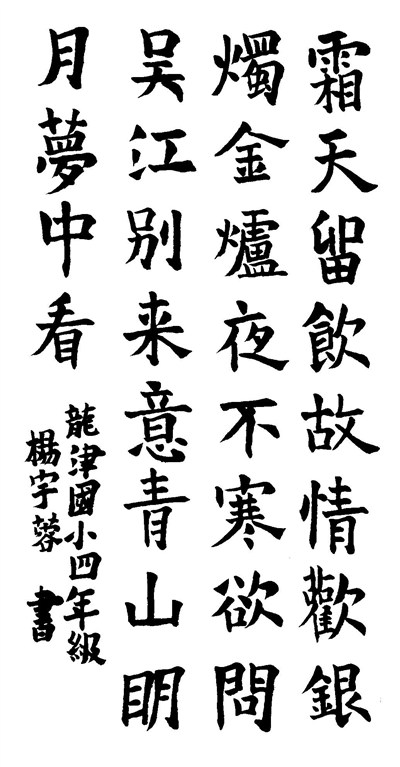 霜天留飲故情歡銀
燭金爐夜不寒欲問
吳江别来意青山明
月夢中看
龍津國小四年級
楊宇蓉 書